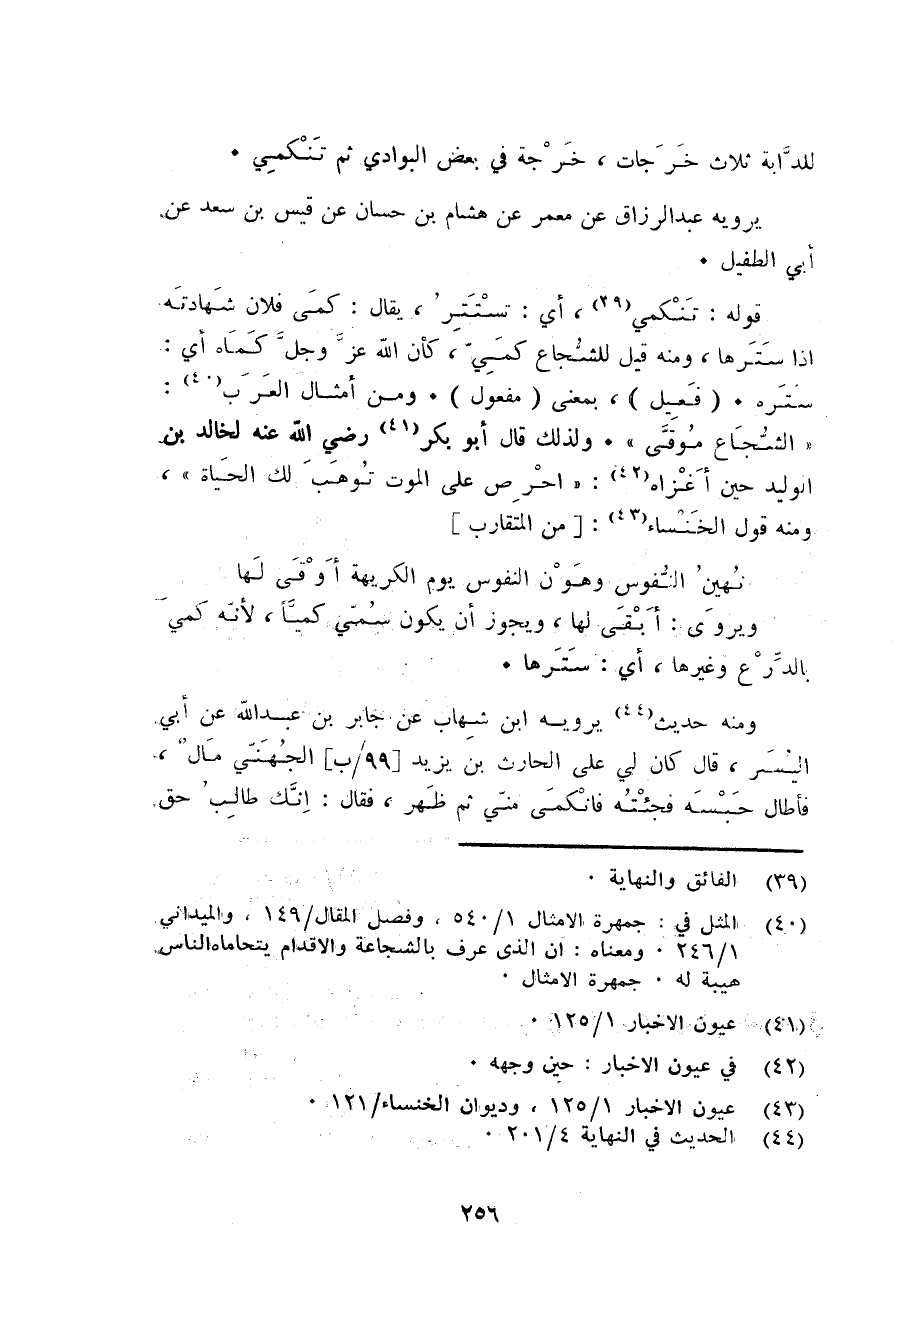 للدَّابة ثلاث خَرَجات ، خَرْجة في بعض البوادي ثم تَنْكمي .
يرويه عبدالرزاق عن معمر عن هشام بن حسان عن قيس بن سعد عن
أبي الطفيل .
قوله : تَنْكمي(٣٩) ، أي : تستْتَتِرُ ، يقال : كمَى فلان شَهادتَه
اذا ستَرها ، ومنه قيل للشُجاع كمَيّ ، كأن الله عزَّ وجلَّ كَماه أي :
سَتَره . ( فَعيل ) ، بمعنى ( مفعول ) . ومن أمثال العَرَب(٤٠) :
« الشُجَاع مُوقَّى » . ولذلك قال أبو بكر(٤١) رضي الله عنه لخالد بن
الوليد حين أَغْزاه(٤٢) : « احْرِص على الموت تُوهَبَ لك الحَياة » ،
ومنه قول الخَنْساء(٤٣) : [ من المتقارب ]
نُهينُ النُفوس وهَوْن النفوس يوم الكريهة أَوْقَى لَها
ويروَى : أَبْقَى لها ، ويجوز أن يكون سُمّي كميَّاً ، لأنّه كمي
بالدِّرْع وغيرها ، أي : ستَرها .
ومنه حديث(٤٤) يرويه ابن شِهاب عن جابر بن عبدالله عن أبي
اليُسَر ، قال كان لي على الحارث بن يزيد [٩٩/ب] الجُهَنّي مَالٌ ،
فأطال حَبْسَه فجئتُه فانْكمَى منّي ثم ظَهر ، فقال : اِنَّك طالِبُ حق
(٣٩) الفائق والنهاية .
(٤٠) المثل في : جمهرة الامثال ٥٤٠/١ ، وفصل المقال/١٤٩ ، والميداني
٢٤٦/١ . ومعناه : ان الذى عرف بالشجاعة والاقدام يتحاماه الناس
هيبة له . جمهرة الامثال .
(٤١) عيون الاخبار ١٢٥/١ .
(٤٢) في عيون الاخبار : حين وجهه .
(٤٣) عيون الاخبار ١٢٥/١ ، وديوان الخنساء/١٢١ .
(٤٤) الحديث في النهاية ٢٠١/٤ .
٢٥٦